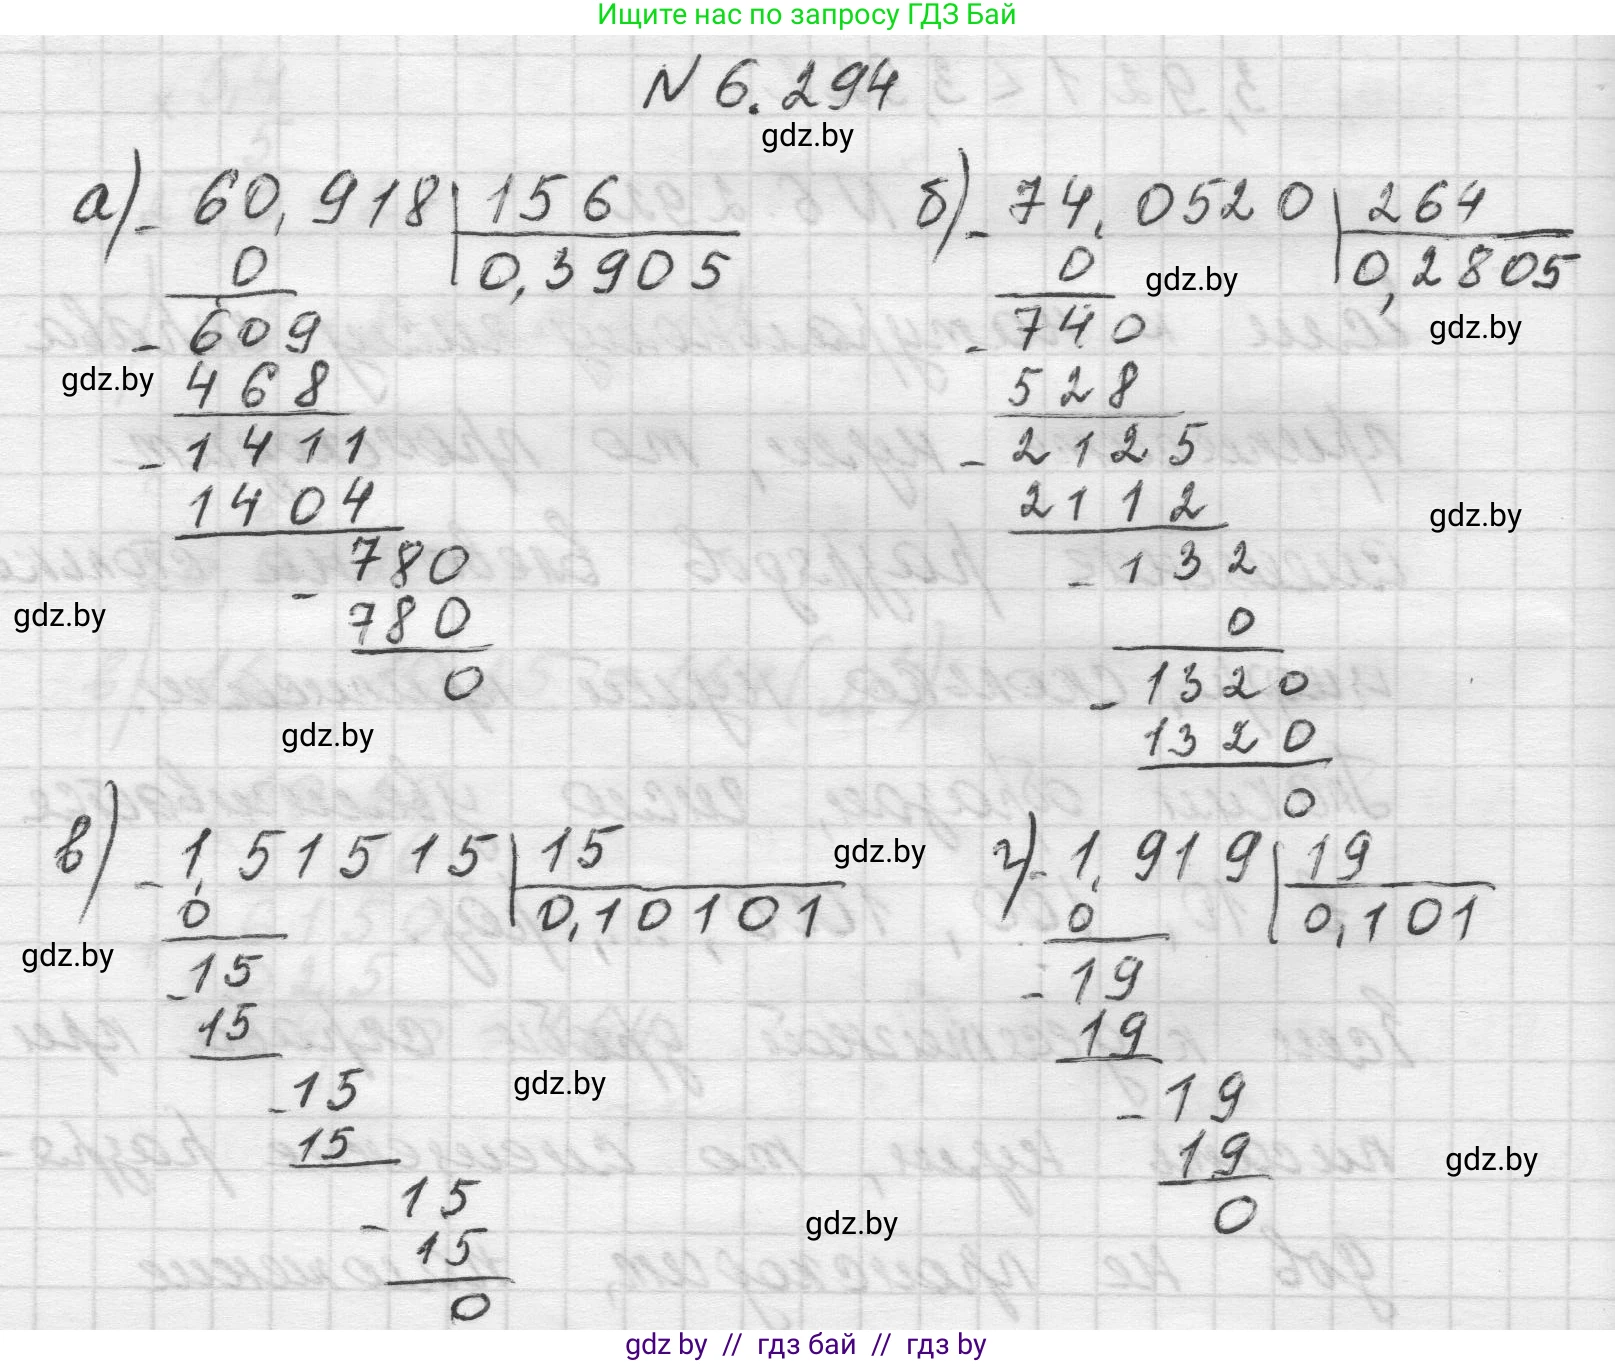 Ищите нас по запросу ГДЗ Бай
N 6.294
gdz.by
а) - 60,918 | 156
0 | 0,3905
- 609
gdz.by
468
- 1411
1404
- 780
gdz.by
780
0
gdz.by
б) - 74,0520 | 264
0 | 0,2805
gdz.by
gdz.by
- 740
528
- 2125
2112
gdz.by
- 132
0
- 1320
1320
0
в) - 1,51515 | 15
0 | 0,10101
gdz.by
gdz.by
- 15
15
- 15
gdz.by
15
- 15
15
0
г) - 1,919 | 19
0 | 0,101
- 19
19
- 19
19
gdz.by
0
gdz.by
gdz by // гдз бай // гдз by